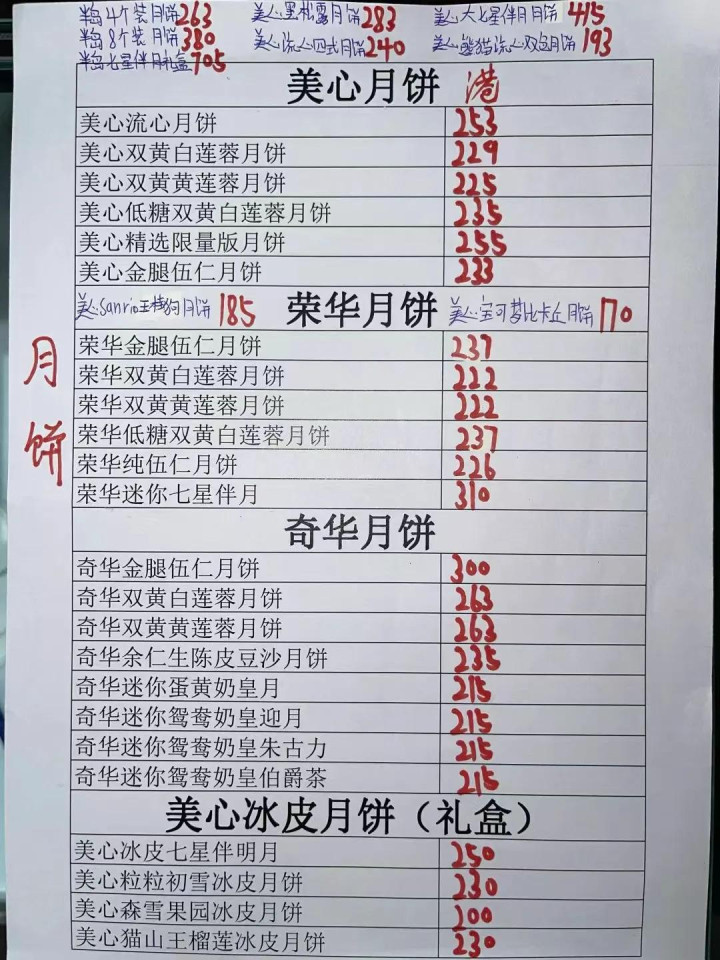 半岛4个装月饼263 美心黑松露月饼283 美心大七星伴月月饼415
半岛8个装月饼380 美心流心四式月饼240 美心熊猫流心双包月饼193
半岛七星伴月礼盒705
美心月饼 港
美心流心月饼 253
美心双黄白莲蓉月饼 229
美心双黄黄莲蓉月饼 225
美心低糖双黄白莲蓉月饼 235
美心精选限量版月饼 255
美心金腿伍仁月饼 233
美心Sanrio玉桂狗月饼 185 荣华月饼 美心宝可梦比卡丘月饼 170
荣华金腿伍仁月饼 237
荣华双黄白莲蓉月饼 222
荣华双黄黄莲蓉月饼 222
荣华低糖双黄白莲蓉月饼 237
荣华纯伍仁月饼 226
荣华迷你七星伴月 310
月饼
奇华月饼
奇华金腿伍仁月饼 300
奇华双黄白莲蓉月饼 263
奇华双黄黄莲蓉月饼 263
奇华余仁生陈皮豆沙月饼 235
奇华迷你蛋黄奶皇月 215
奇华迷你鸳鸯奶皇迎月 215
奇华迷你鸳鸯奶皇朱古力 215
奇华迷你鸳鸯奶皇伯爵茶 215
美心冰皮月饼（礼盒）
美心冰皮七星伴明月 250
美心粒粒初雪冰皮月饼 230
美心森雪果园冰皮月饼 200
美心猫山王榴莲冰皮月饼 230